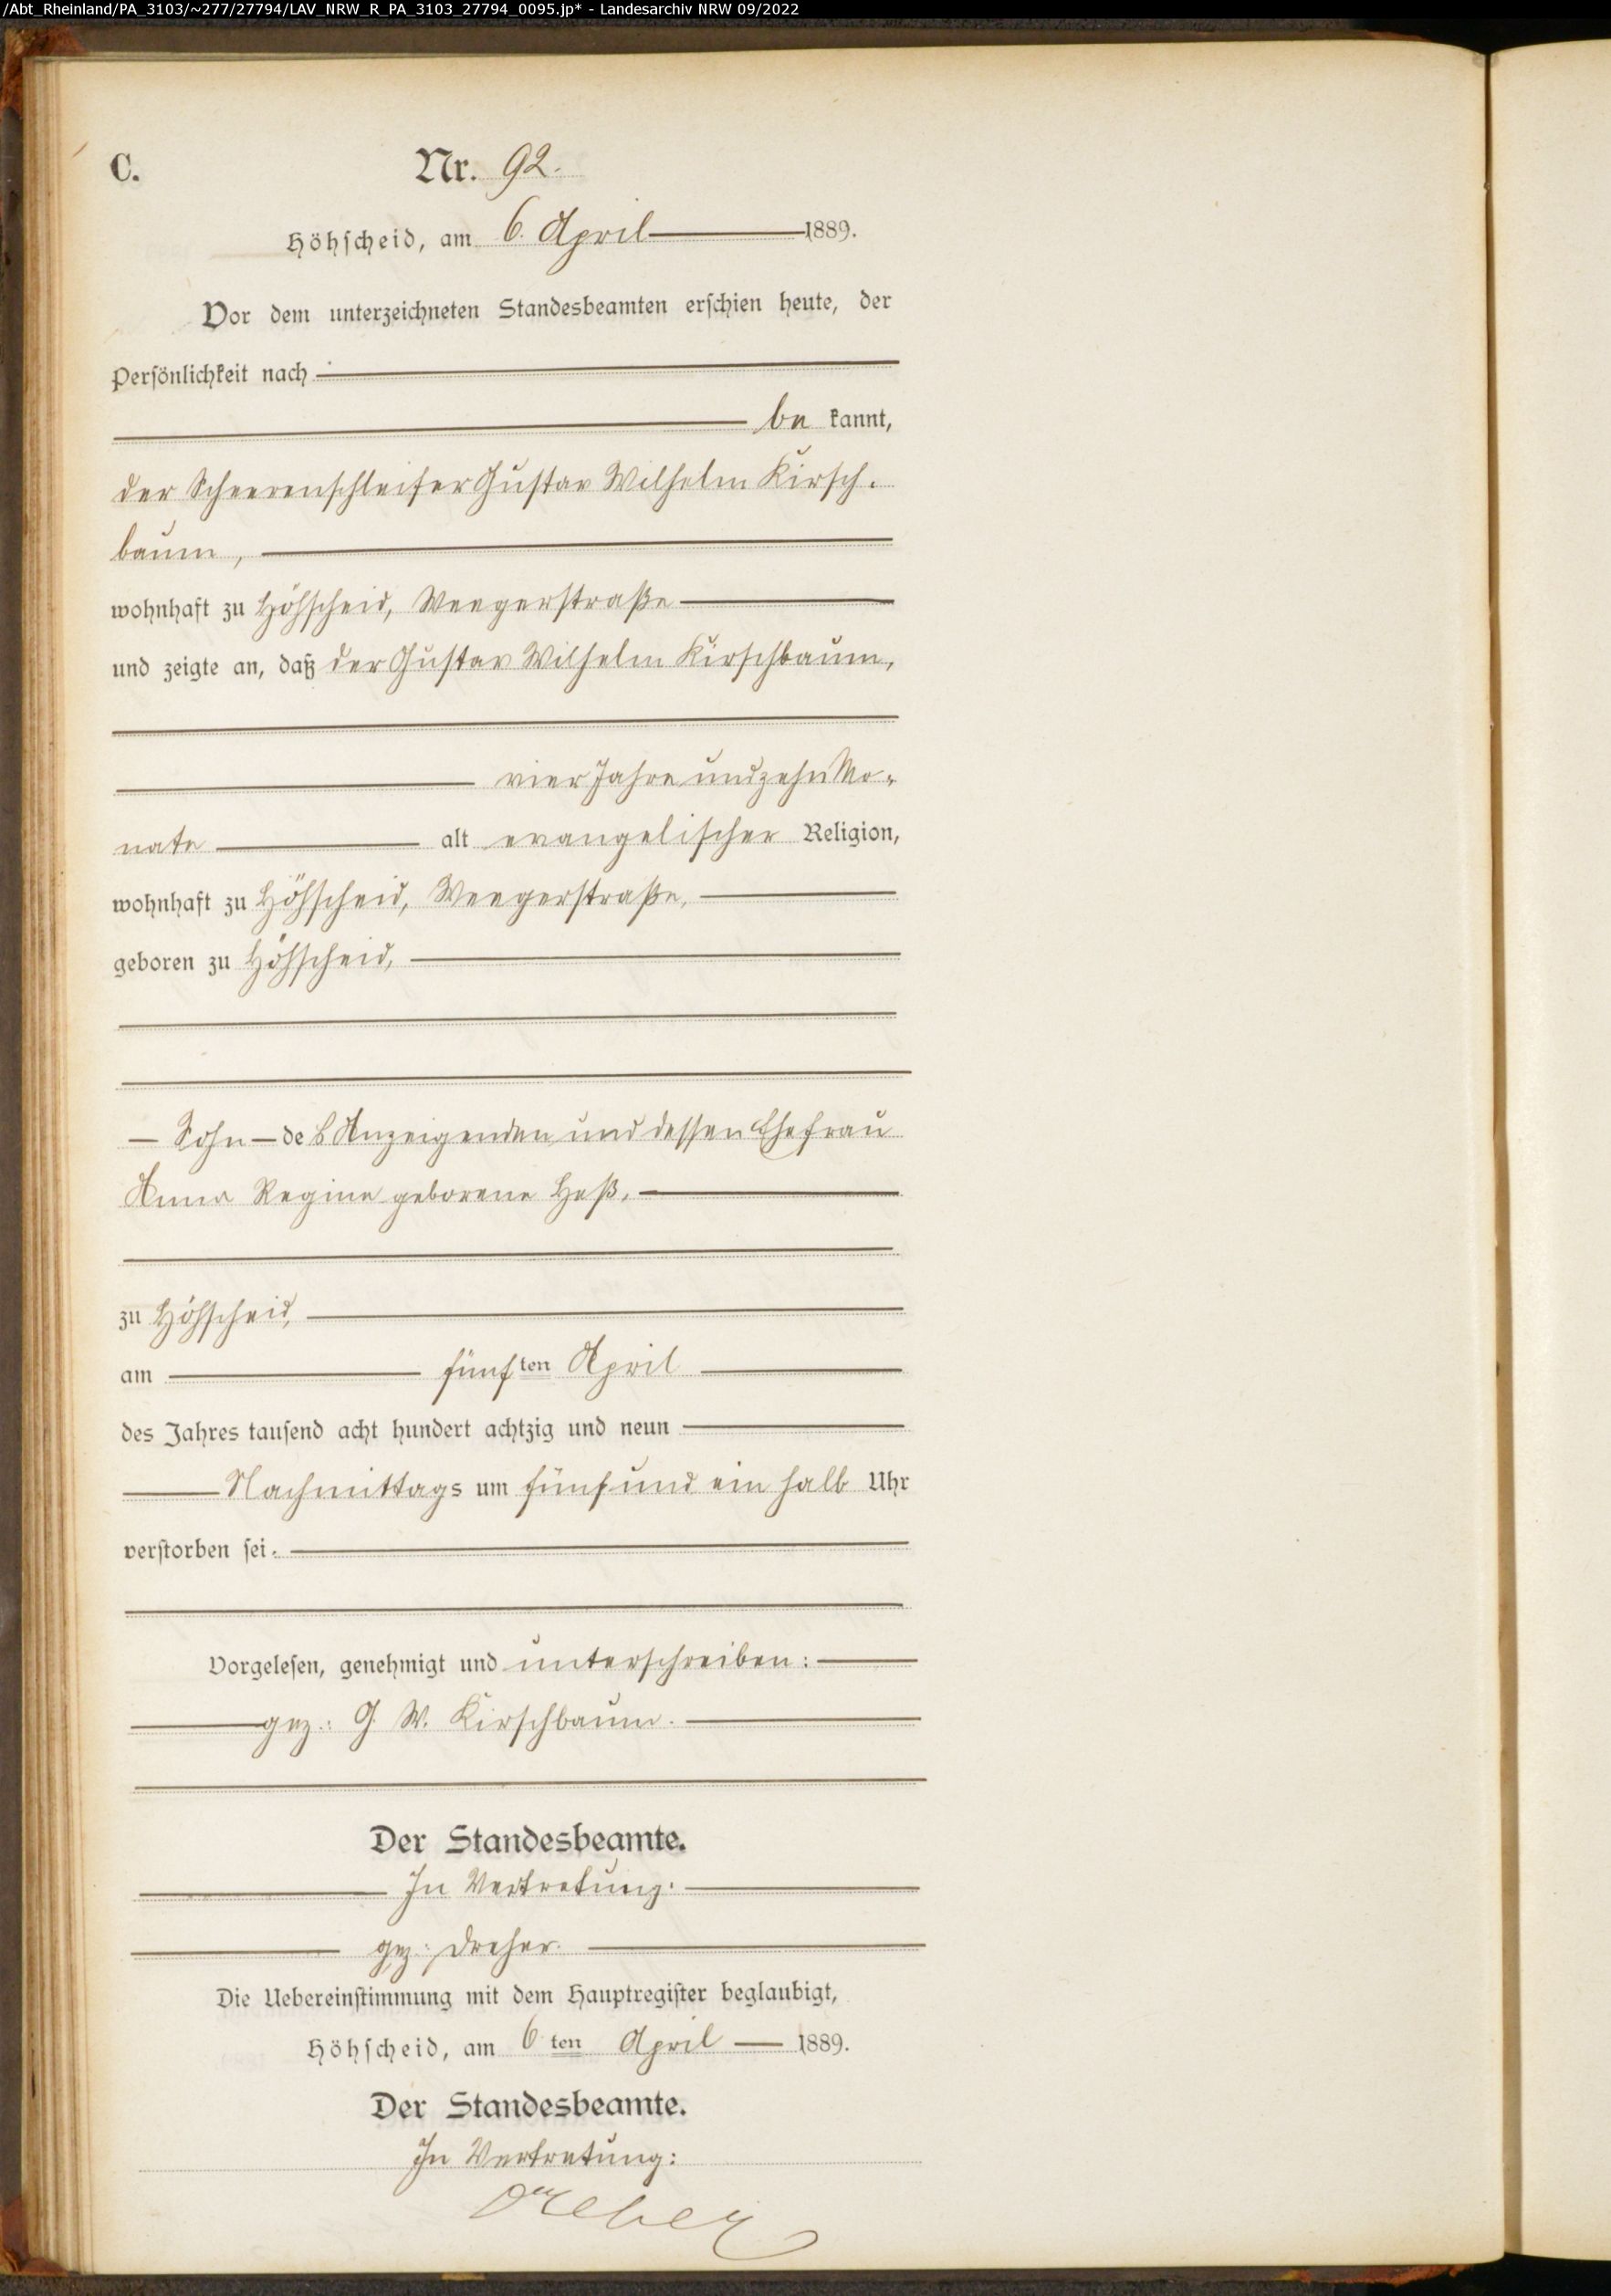 /Abt_Rheinland/PA_3103/~277/27794/LAV_NRW_R_PA_3103_27794_0095.jp* - Landesarchiv NRW 09/2022
C. Nr. 92.
Höhscheid, am 6. April 1889.
Vor dem unterzeichneten Standesbeamten erschien heute, der
Persönlichkeit nach
be kannt,
der Scheerenschleifer Gustav Wilhelm Kirsch-
baum,
wohnhaft zu Höhscheid, Weegerstraße
und zeigte an, daß der Gustav Wilhelm Kirschbaum,
vier Jahre und zehn Mo-
nate alt evangelischer Religion,
wohnhaft zu Höhscheid, Weegerstraße,
geboren zu Höhscheid,
Sohn des Anzeigenden und dessen Ehefrau
Anna Regine geborene Heß,
zu Höhscheid,
am fünften April
des Jahres tausend acht hundert achtzig und neun
Nachmittags um fünf und ein halb Uhr
verstorben sei.
Vorgelesen, genehmigt und unterschreiben:
gez.: G. W. Kirschbaum.
Der Standesbeamte.
In Vertretung:
gez.: Dreher.
Die Uebereinstimmung mit dem Hauptregister beglaubigt,
Höhscheid, am 6ten April 1889.
Der Standesbeamte.
In Vertretung:
Dreher